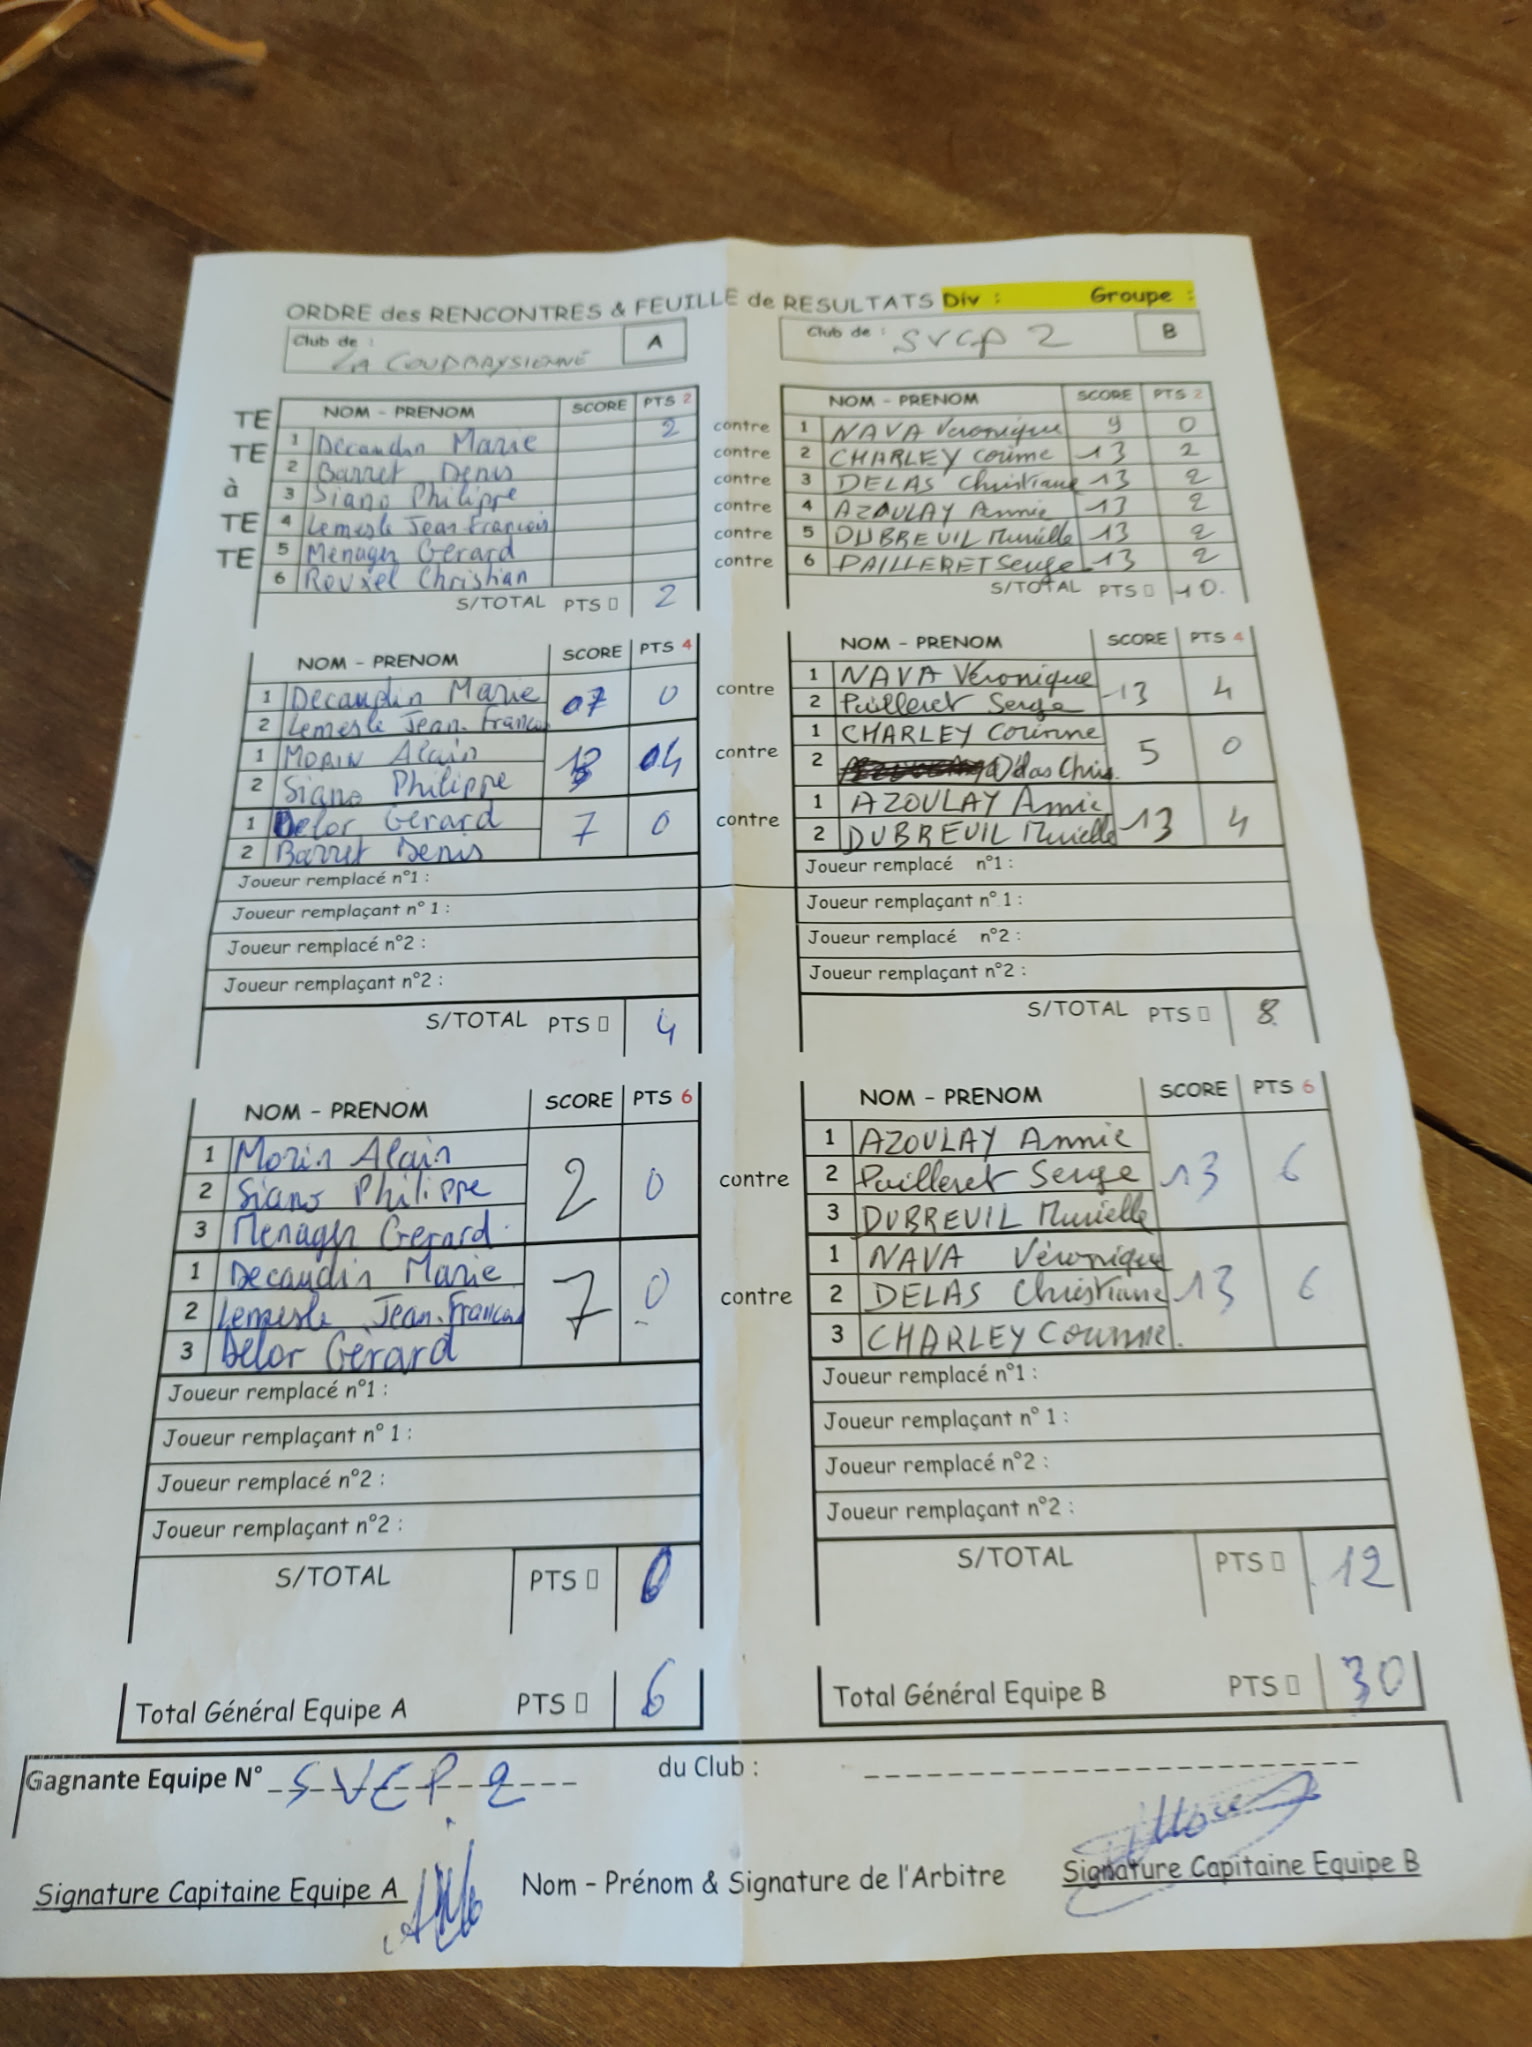 ORDRE des RENCONTRES & FEUILLE de RESULTATS Div : Groupe :
Club de : LA COUDRAYSIENNE A
Club de : SVEP 2 B
NOM - PRENOM SCORE PTS 2 NOM - PRENOM SCORE PTS 2
TE 1 Decaudin Marie 2 contre 1 NAVA Veronique 9 0
TE 2 Barret Denis contre 2 CHARLEY Corinne 13 2
à 3 Siano Philippe contre 3 DELAS Christiane 13 2
TE 4 Lemesle Jean-Francois contre 4 AZOULAY Annie 13 2
TE 5 Menager Gerard contre 5 DUBREUIL Murielle 13 2
6 Rouxel Christian contre 6 PAILLERET Serge 13 2
S/TOTAL PTS 2 S/TOTAL PTS 10.
NOM - PRENOM SCORE PTS 4 NOM - PRENOM SCORE PTS 4
1 Decaudin Marie 07 0 contre 1 NAVA Véronique 13 4
2 Lemesle Jean-Francois 2 Pailleret Serge
1 MORIN Alain 13 4 contre 1 CHARLEY Corinne 5 0
2 Siano Philippe 2 Délas Chris.
1 Delor Gerard 7 0 contre 1 AZOULAY Annie 13 4
2 Barret Denis 2 DUBREUIL Murielle
Joueur remplacé n°1 : Joueur remplacé n°1 :
Joueur remplaçant n° 1 : Joueur remplaçant n° 1 :
Joueur remplacé n°2 : Joueur remplacé n°2 :
Joueur remplaçant n°2 : Joueur remplaçant n°2 :
S/TOTAL PTS 4 S/TOTAL PTS 8
NOM - PRENOM SCORE PTS 6 NOM - PRENOM SCORE PTS 6
1 Morin Alain 2 0 contre 1 AZOULAY Annie 13 6
2 Siano Philippe 2 Pailleret Serge
3 Menager Gerard 3 DUBREUIL Murielle
1 Decaudin Marie 7 0 contre 1 NAVA Véronique 13 6
2 Lemesle Jean-Francois 2 DELAS Christiane
3 Delor Gérard 3 CHARLEY Corinne.
Joueur remplacé n°1 : Joueur remplacé n°1 :
Joueur remplaçant n° 1 : Joueur remplaçant n° 1 :
Joueur remplacé n°2 : Joueur remplacé n°2 :
Joueur remplaçant n°2 : Joueur remplaçant n°2 :
S/TOTAL PTS 0 S/TOTAL PTS 12
Total Général Equipe A PTS 6 Total Général Equipe B PTS 30
Gagnante Equipe N° SVEP 2 du Club :
Signature Capitaine Equipe A Nom - Prénom & Signature de l'Arbitre Signature Capitaine Equipe B